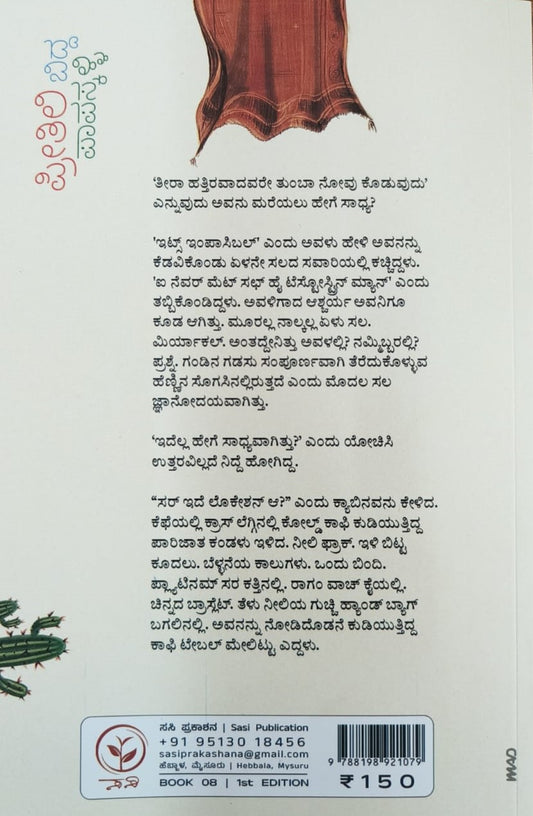 ಪ್ರೀತಿಲಿ ಬಿದ್ದ
ಪಾಪಸ್ಕಳ್ಳಿ
‘ತೀರಾ ಹತ್ತಿರವಾದವರೇ ತುಂಬಾ ನೋವು ಕೊಡುವುದು’
ಎನ್ನುವುದು ಅವನು ಮರೆಯಲು ಹೇಗೆ ಸಾಧ್ಯ?
'ಇಟ್ಸ್ ಇಂಪಾಸಿಬಲ್' ಎಂದು ಅವಳು ಹೇಳಿ ಅವನನ್ನು
ಕೆಡವಿಕೊಂಡು ಏಳನೇ ಸಲದ ಸವಾರಿಯಲ್ಲಿ ಕಚ್ಚಿದ್ದಳು.
'ಐ ನೆವರ್ ಮೆಟ್ ಸಛ್ ಹೈ ಟೆಸ್ಟೋಸ್ಟ್ರಿನ್ ಮ್ಯಾನ್' ಎಂದು
ತಬ್ಬಿಕೊಂಡಿದ್ದಳು. ಅವಳಿಗಾದ ಆಶ್ಚರ್ಯ ಅವನಿಗೂ
ಕೂಡ ಆಗಿತ್ತು. ಮೂರಲ್ಲ ನಾಲ್ಕಲ್ಲ ಏಳು ಸಲ.
ಮಿರ್ಯಾಕಲ್. ಅಂತದ್ದೇನಿತ್ತು ಅವಳಲ್ಲಿ? ನಮ್ಮಿಬ್ಬರಲ್ಲಿ?
ಪ್ರಶ್ನೆ. ಗಂಡಿನ ಗಡಸು ಸಂಪೂರ್ಣವಾಗಿ ತೆರೆದುಕೊಳ್ಳುವ
ಹೆಣ್ಣಿನ ಸೊಗಸಿನಲ್ಲಿರುತ್ತದೆ ಎಂದು ಮೊದಲ ಸಲ
ಜ್ಞಾನೋದಯವಾಗಿತ್ತು.
‘ಇದೆಲ್ಲ ಹೇಗೆ ಸಾಧ್ಯವಾಗಿತ್ತು?’ ಎಂದು ಯೋಚಿಸಿ
ಉತ್ತರವಿಲ್ಲದೆ ನಿದ್ದೆ ಹೋಗಿದ್ದ.
“ಸರ್ ಇದೆ ಲೊಕೇಶನ್ ಆ?” ಎಂದು ಕ್ಯಾಬಿನವನು ಕೇಳಿದ.
ಕೆಫೆಯಲ್ಲಿ ಕ್ರಾಸ್ ಲೆಗ್ಗಿನಲ್ಲಿ ಕೋಲ್ಡ್ ಕಾಫಿ ಕುಡಿಯುತ್ತಿದ್ದ
ಪಾರಿಜಾತ ಕಂಡಳು ಇಳಿದ. ನೀಲಿ ಫ್ರಾಕ್. ಇಳಿ ಬಿಟ್ಟ
ಕೂದಲು. ಬೆಳ್ಳನೆಯ ಕಾಲುಗಳು. ಒಂದು ಬಿಂದಿ.
ಪ್ಲ್ಯಾಟಿನಮ್ ಸರ ಕತ್ತಿನಲ್ಲಿ. ರಾಗಂ ವಾಚ್ ಕೈಯಲ್ಲಿ.
ಚಿನ್ನದ ಬ್ರಾಸ್ಲೆಟ್. ತೆಳು ನೀಲಿಯ ಗುಚ್ಚಿ ಹ್ಯಾಂಡ್ ಬ್ಯಾಗ್
ಬಗಲಿನಲ್ಲಿ. ಅವನನ್ನು ನೋಡಿದೊಡನೆ ಕುಡಿಯುತ್ತಿದ್ದ
ಕಾಫಿ ಟೇಬಲ್ ಮೇಲಿಟ್ಟು ಎದ್ದಳು.
ಸಸಿ ಪ್ರಕಾಶನ | Sasi Publication
+91 95130 18456
sasiprakashana@gmail.com
ಹೆಬ್ಬಾಳ, ಮೈಸೂರು | Hebbala, Mysuru
BOOK 08 | 1st EDITION
ಸಸಿ
9 788198 921079
₹150